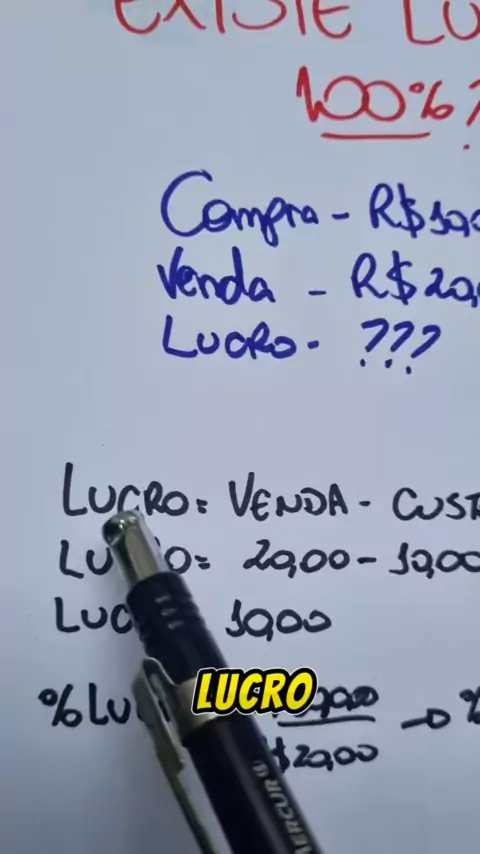 EXISTE LU
100%?
Compra - R$ 10,0
Venda - R$ 20,
LUCRO - ???
LUCRO = VENDA - CUST
LU O = 20,00 - 10,00
LUC 10,00
%LU 10,00 → %
$20,00
LUCRO
MERCUR